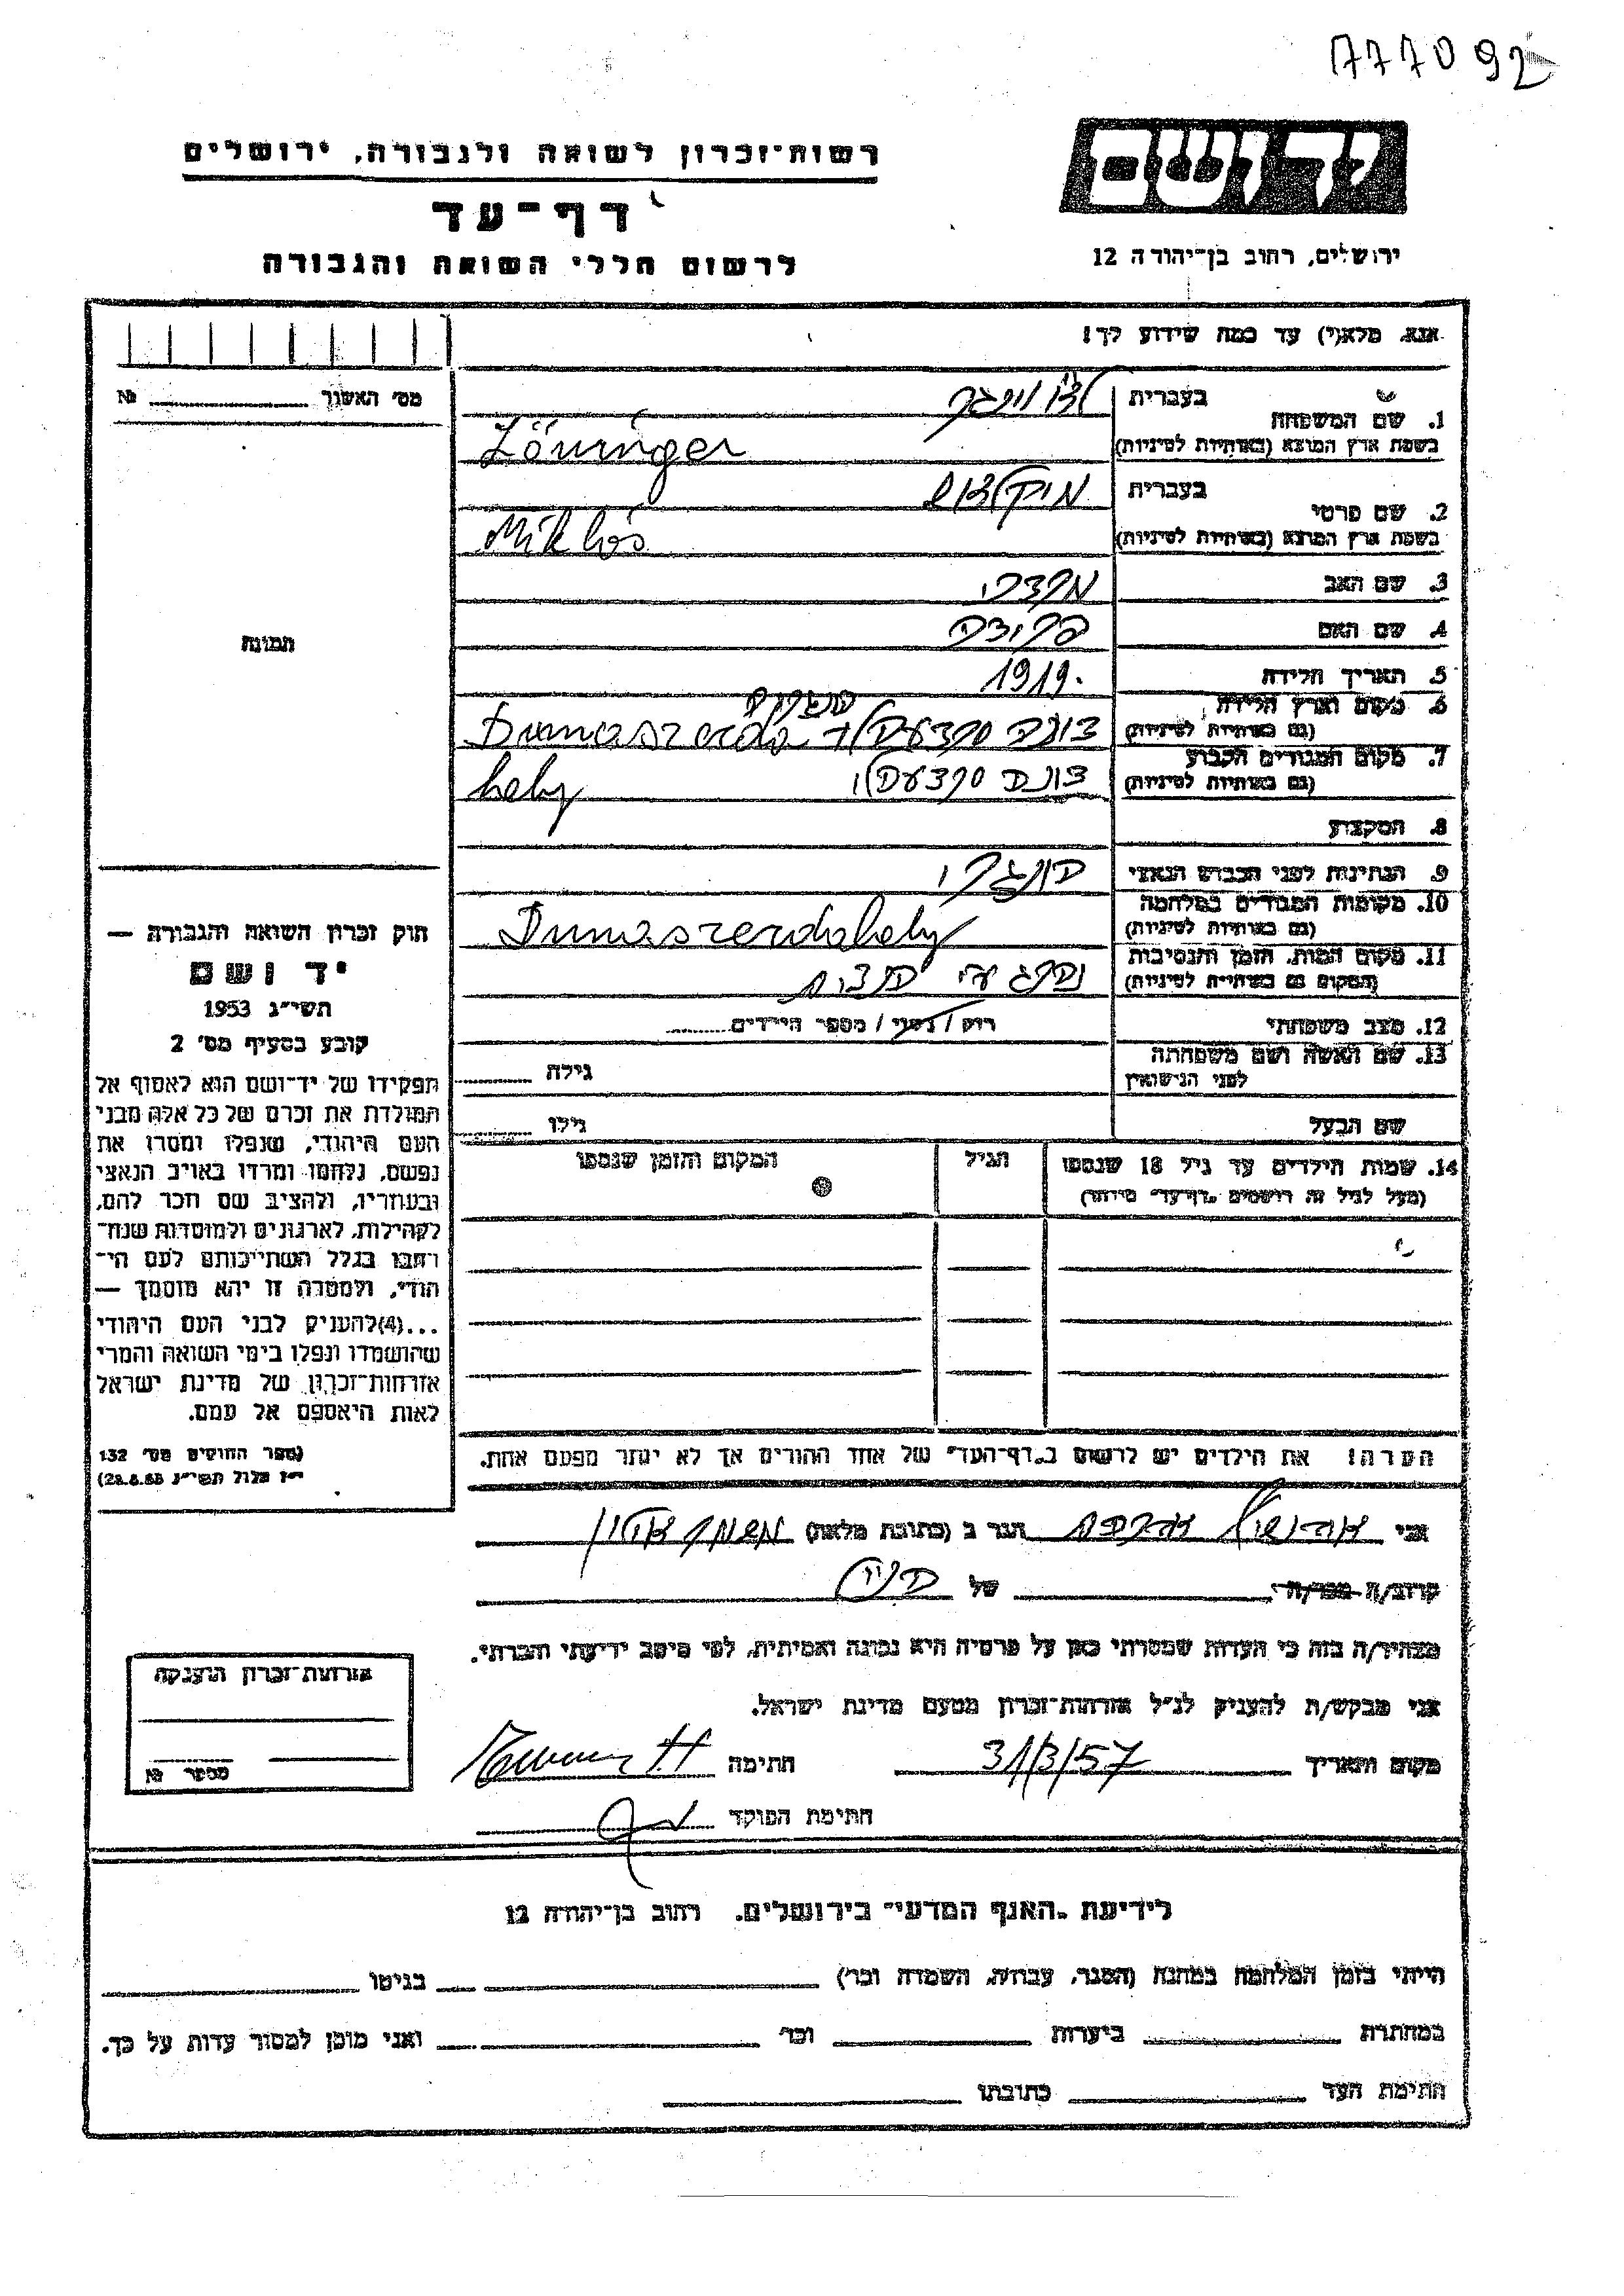 777092
רשות־זכרון לשואה ולגבורה, ירושלים
דף־עד
לרשום חללי השואה והגבורה
יד ושם
ירושלים, רחוב בן־יהודה 12
אנא, מלא(י) עד כמה שידוע לך!
מס׳ האשור № 
1. שם המשפחה
בעברית
בשפת ארץ המוצא (באותיות לטיניות) Löwinger
2. שם פרטי
בעברית
בשפת ארץ המוצא (באותיות לטיניות) Miklós
3. שם האב
4. שם האם
5. תאריך הלידה 1919.
6. מקום וארץ הלידה
(גם באותיות לטיניות) Dunaszerda
7. מקום המגורים הקבוע
(גם באותיות לטיניות) hely
8. המקצוע
9. הנתינות לפני הכבוש הנאצי הונגרי
10. מקומות המגורים במלחמה
(גם באותיות לטיניות) Dunaszerdahely
11. מקום המות, הזמן והנסיבות
(המקום גם באותיות לטיניות)
12. מצב משפחתי רווק / נשוי / מספר הילדים
13. שם האשה ושם משפחתה
לפני הנישואין גילה
שם הבעל גילו
14. שמות הילדים עד גיל 18 שנספו
(מעל לגיל זה רושמים „דף־עד״ מיוחד)
הגיל
המקום והזמן שנספו
תמונה
חוק זכרון השואה והגבורה —
יד ושם
תשי״ג 1953
קובע בסעיף מס׳ 2
תפקידו של יד־ושם הוא לאסוף אל
המולדת את זכרם של כל אלה מבני
העם היהודי, שנפלו ומסרו את
נפשם, נלחמו ומרדו באויב הנאצי
ובעוזריו, ולהציב שם וזכר להם,
לקהילות, לארגונים ולמוסדות שנח־
רבו בגלל השתייכותם לעם הי־
הודי, ולמטרה זו יהא מוסמך —
...(4)להעניק לבני העם היהודי
שהושמדו ונפלו בימי השואה והמרי
אזרחות־זכרון של מדינת ישראל
לאות היאספם אל עמם.
(ספר החוקים מס׳ 132
י״ז אלול תשי״ג 28.8.53)
הערה! את הילדים יש לרשום ב„דף־העד״ של אחד ההורים אך לא יותר מפעם אחת.
אני הגר ב (כתובת מלאה)
קרוב/ה מכר/ה של
מצהיר/ה בזה כי העדות שמסרתי כאן על פרטיה היא נכונה ואמיתית, לפי מיטב ידיעתי והכרתי.
אני מבקש/ת להעניק לנ״ל אזרחות־זכרון מטעם מדינת ישראל.
מקום ותאריך 31/3/57 חתימה
חתימת הפוקד
אזרחות־זכרון הוענקה
מספר №
לידיעת „האגף המדעי״ בירושלים, רחוב בן־יהודה 12
הייתי בזמן המלחמה במחנה (הסגר, עבודה, השמדה וכו׳) בגיטו
במחתרת ביערות וכו׳ ואני מוכן למסור עדות על כך.
חתימת העד כתובתו